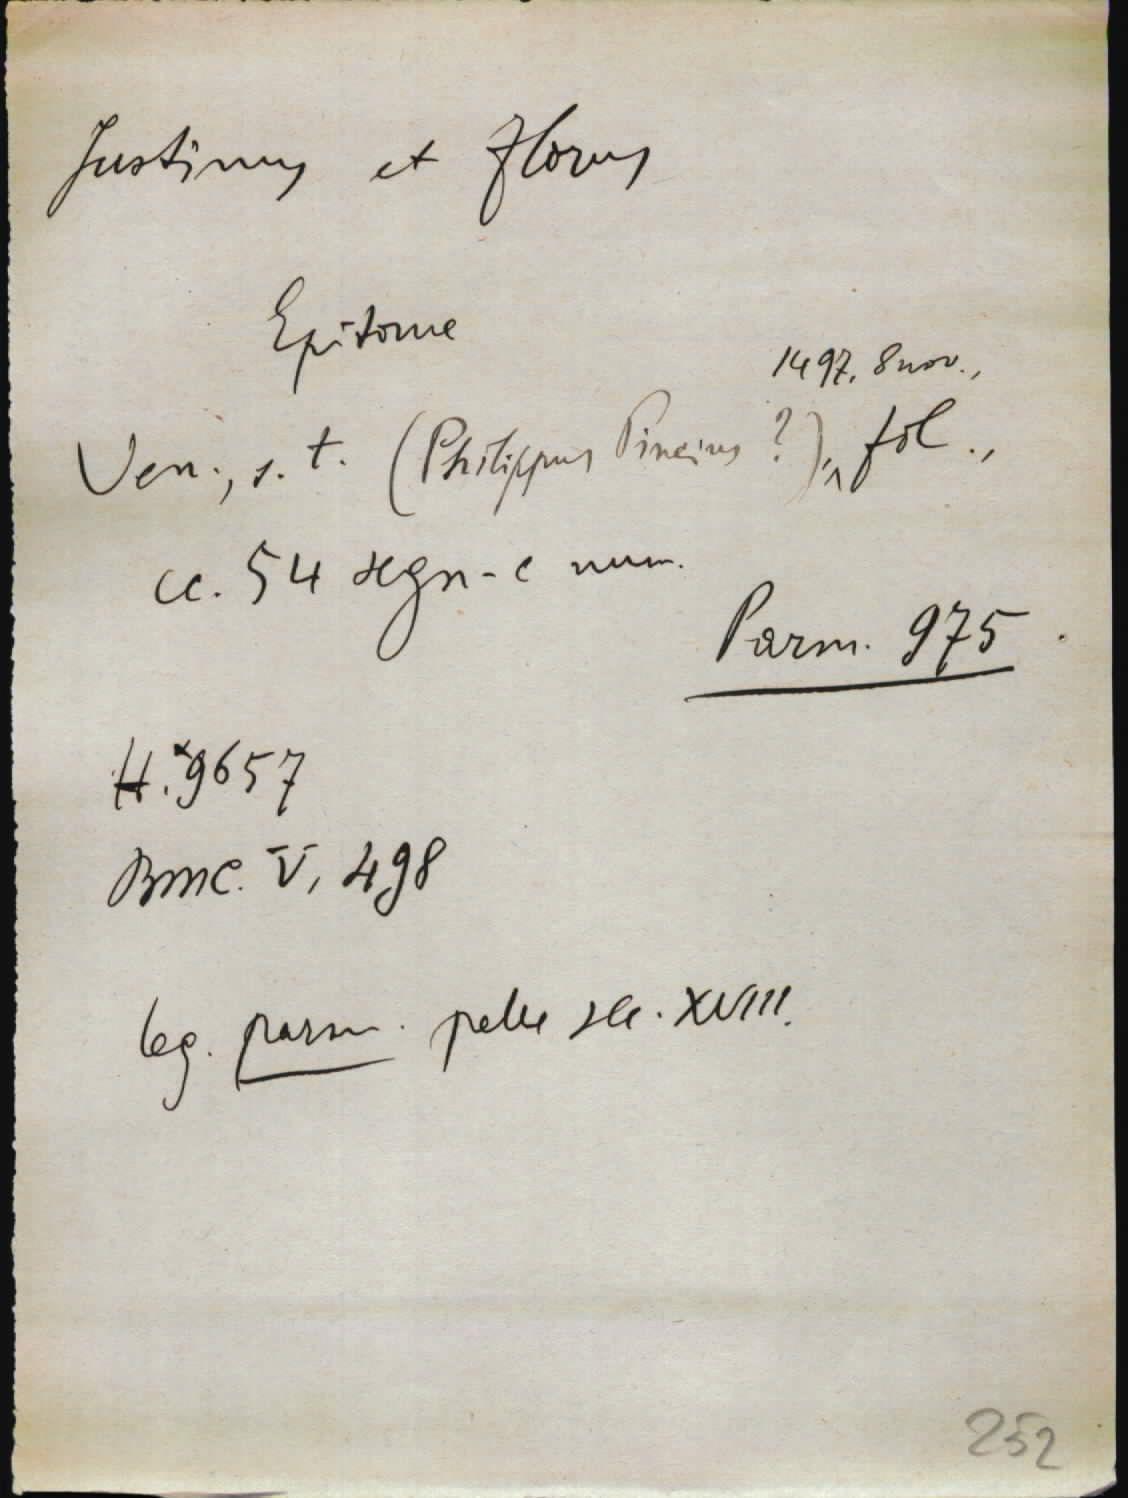 Justinus et Florus
Epitome
1497, 8 nov.,
Ven., s. t. (Philippus Pincius ?), ^ fol.,
cc. 54 segn- e num.
Parm. 975
H.*9657
BMC. V, 498
leg. parm. pelle sec. XVIII.
252